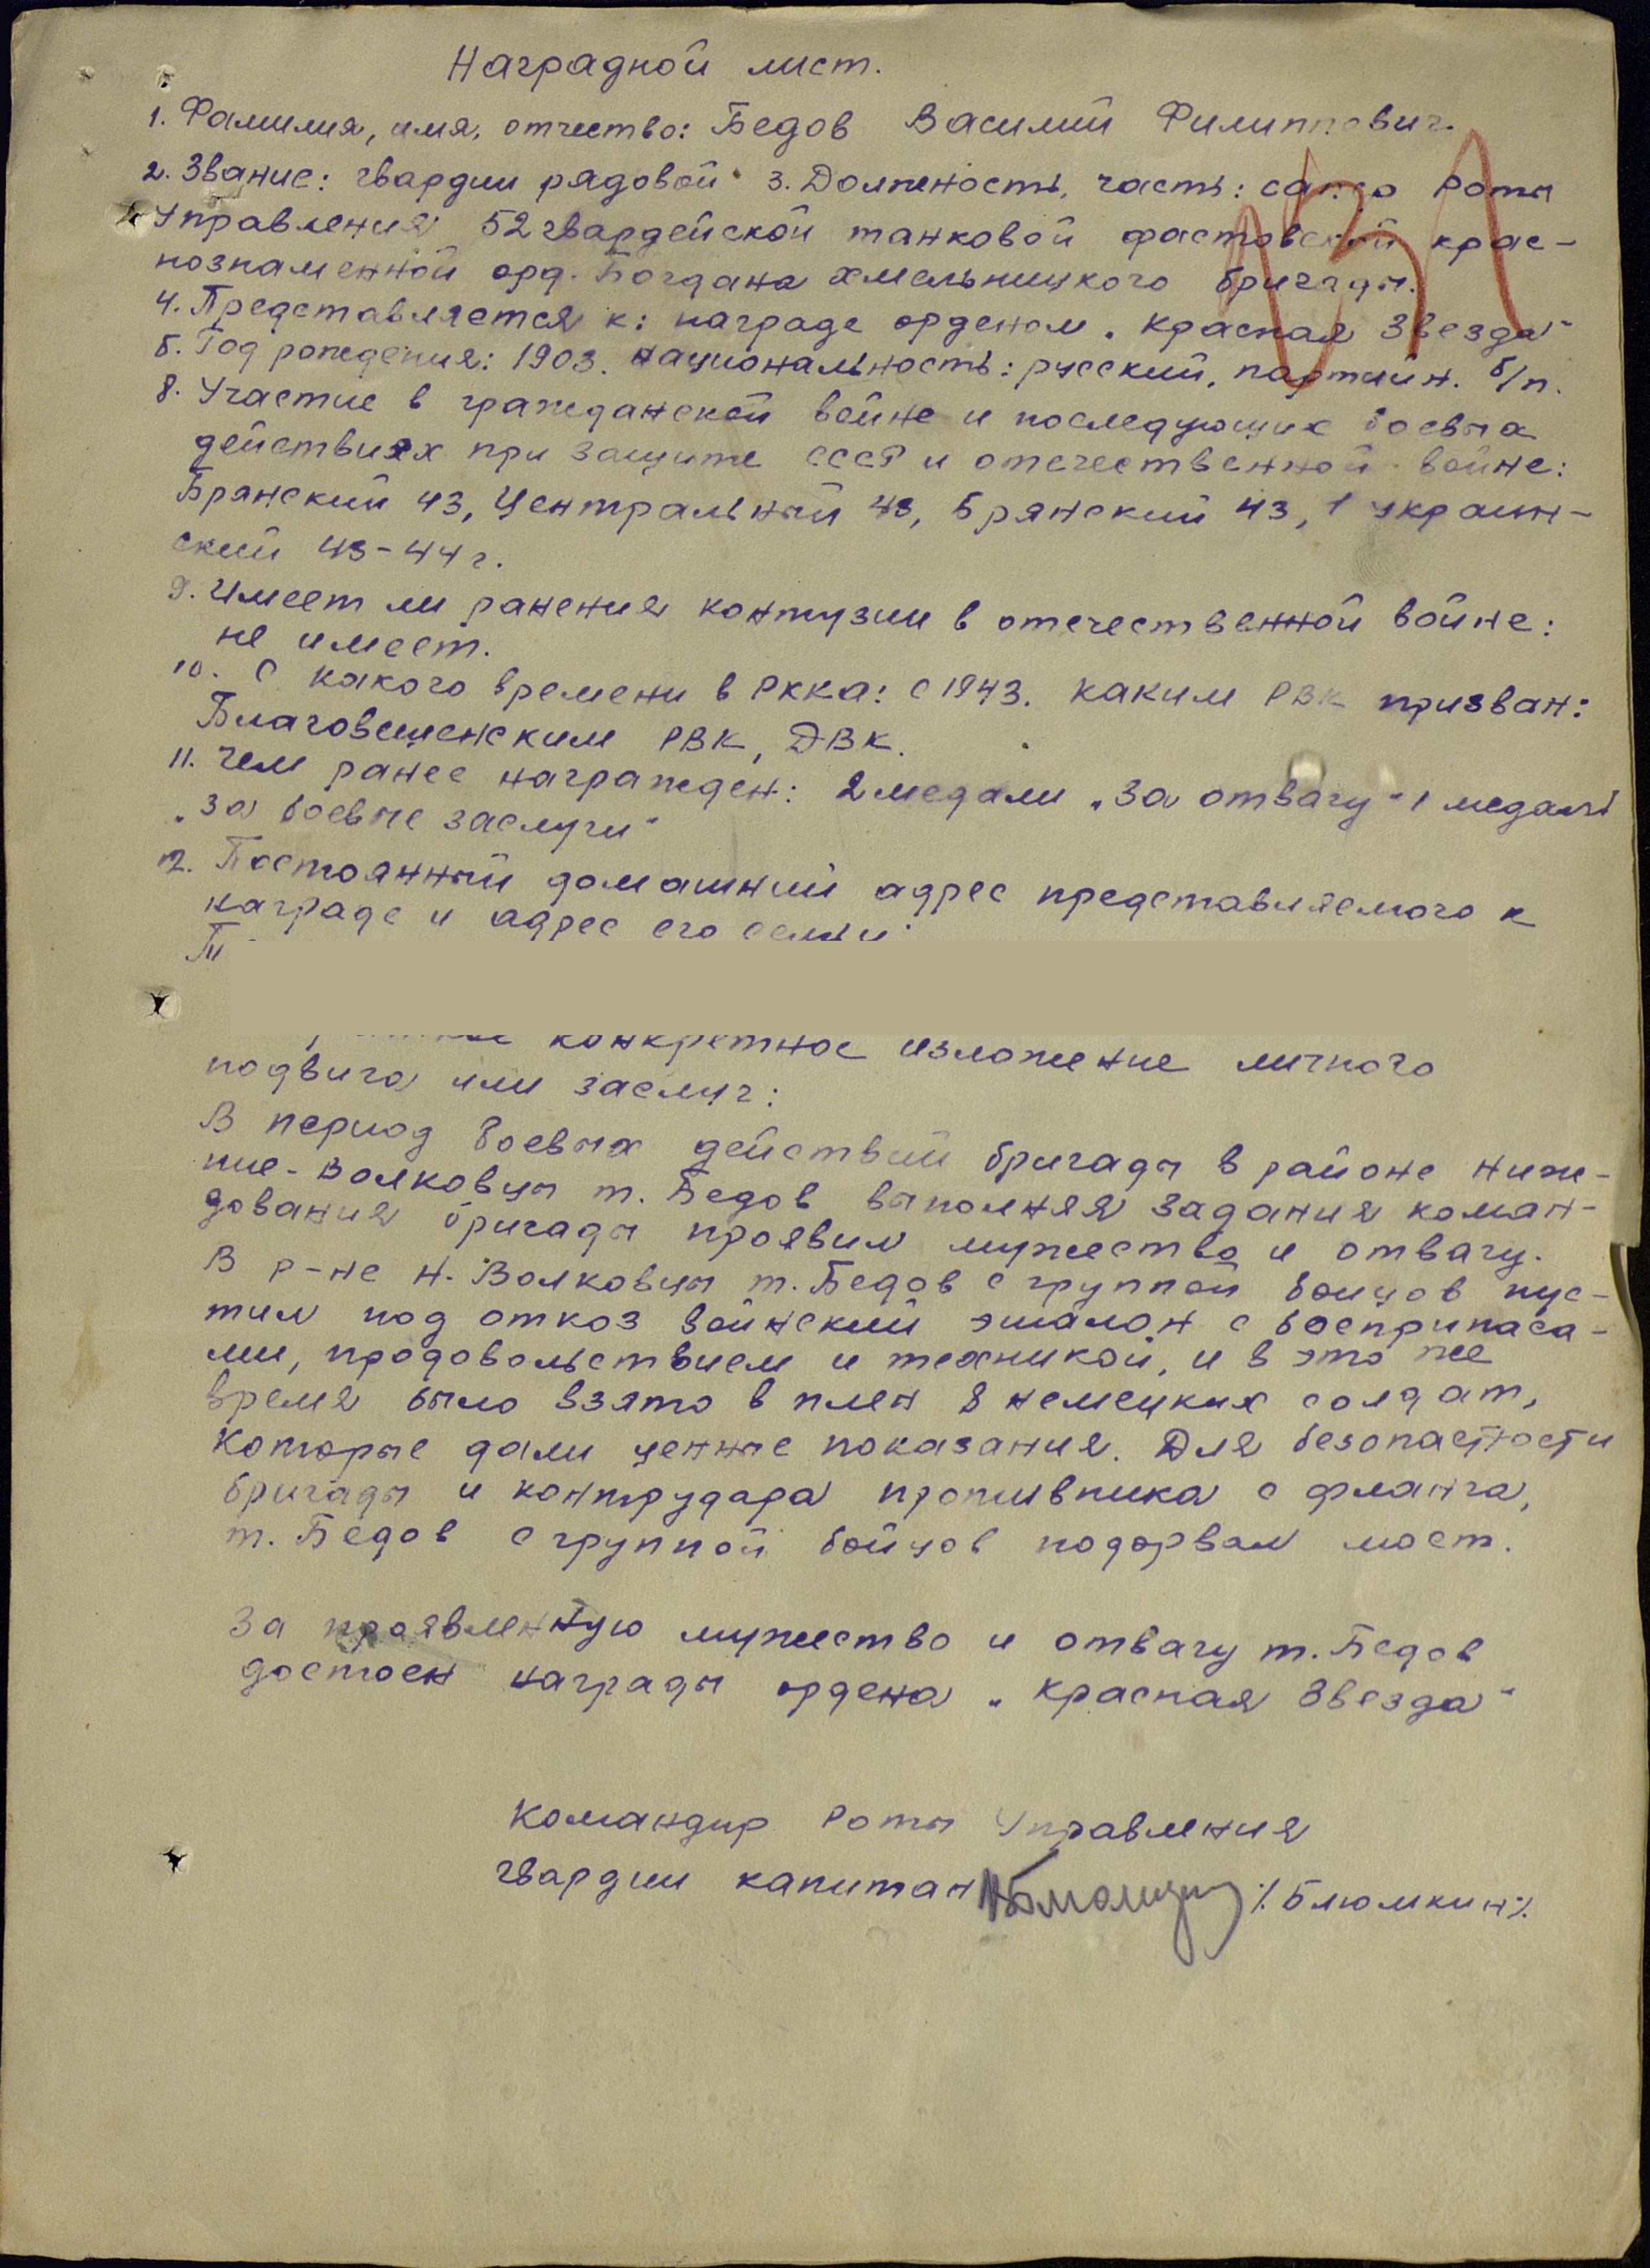 Наградной лист.
1. Фамилия, имя, отчество: Бедов Василий Филиппович.
2. Звание: гвардии рядовой 3. Должность, часть: роты
Управления 52 гвардейской танковой фастовской крас-
нознаменной орд. Богдана Хмельницкого бригады.
4. Представляется к: награде орденом „Красная Звезда"
5. Год рождения: 1903. национальность: русский, партийн. б/п.
8. Участие в гражданской войне и последующих боевых
действиях при защите СССР и отечественной войне:
Брянский 43, Центральный 43, Брянский 43, 1 Украин-
ский 43-44 г.
9. Имеет ли ранения контузии в отечественной войне:
не имеет.
10. С какого времени в РККА: с 1943. каким РВК призван:
Благовещенским РВК, ДВК.
11. Чем ранее награжден: 2 медали „За отвагу" 1 медаль
„за боевые заслуги"
12. Постоянный домашний адрес представляемого к
награде и адрес его семьи:
конкретное изложение личного
подвига или заслуг:
В период боевых действий бригады в районе Ниж-
ние-Волковцы т. Бедов выполняя задания коман-
дования бригады проявил мужество и отвагу.
В р-не Н. Волковцы т. Бедов с группой бойцов пус-
тил под откоз воинский эшалон с боеприпаса-
ми, продовольствием и техникой, и в это же
время было взято в плен 8 немецких солдат,
которые дали ценные показания. Для безопастности
бригады и контрудара противника с фланга,
т. Бедов с группой бойцов подорвал мост.
За проявленную мужество и отвагу т. Бедов
достоен награды ордена „Красная Звезда"
Командир Роты Управления
гвардии капитан /Блюмкин/.